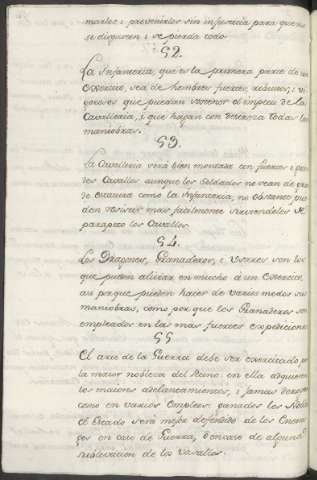 marlos i prevenirlos sin injusticia para que no
se disgusten i se pierda todo.
§2.
La Infanteria, que es la primera parte de un
Exercito, sea de hombres fuertes, robustos, i vi
gorosos que puedan sostener el impetu de la
Cavalleria, i que hagan con destreza todas las
maniobras.
§3.
La Cavalleria será bien montada con fuertes i gran
des Cavallos aunque los Soldados no sean de gran
de estatura como la Infanteria, no obstante pue
den resistir mas facilmente sirviendoles de
parapeto los Cavallos.
§4.
Los Dragones, Granaderos, i Usares son los
que pueden aliviar en mucho á un Exercito,
asi porque pueden hacer de varios modos sus
maniobras, como por que los Granaderos son
empleados en las mas fuertes expediciones
§5
El arte de la Guerra debe ser exercitado por
la maior nobleza del Reino: en ella adquieren
los maiores adelantamientos, i famas
como en varios Empleos: ganados los Nobles
el Estado será mejor defendido de los Enemi
gos en caso de Guerra, ó en caso de alguna
sublevacion de los Vasallos.